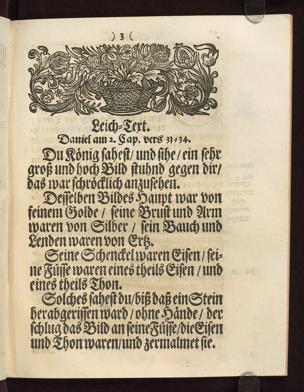 ) 3 (
Leich-Text.
Daniel am 2. Cap. vers 31-34.
Du König sahest/ und sihe/ ein sehr
groß und hoch Bild stuhnd gegen dir/
das war schröcklich anzusehen.
Desselben Bildes Haupt war von
feinem Golde/ seine Brust und Arm
waren von Silber/ sein Bauch und
Lenden waren von Ertz.
Seine Schenckel waren Eisen/ sei-
ne Füsse waren eines theils Eisen/ und
eines theils Thon.
Solches sahest du/ biß daß ein Stein
herab gerissen ward/ ohne Hände/ der
schlug das Bild an seine Füsse/ die Eisen
und Thon waren/ und zermalmet sie.